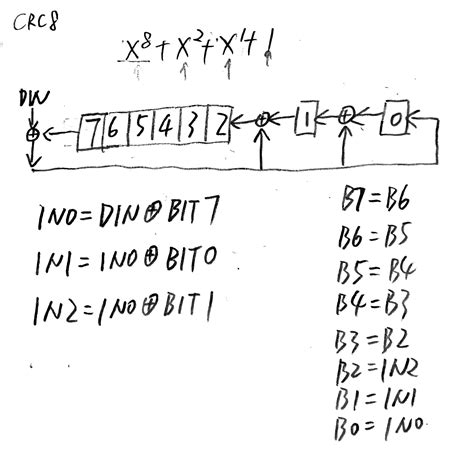 CRC8
X⁸+X²+X+1
DIN
⊕ 7 6 5 4 3 2 ⊕ 1 ⊕ 0
IN0=DIN⊕BIT7
IN1=IN0⊕BIT0
IN2=IN0⊕BIT1
B7=B6
B6=B5
B5=B4
B4=B3
B3=B2
B2=IN2
B1=IN1
B0=IN0